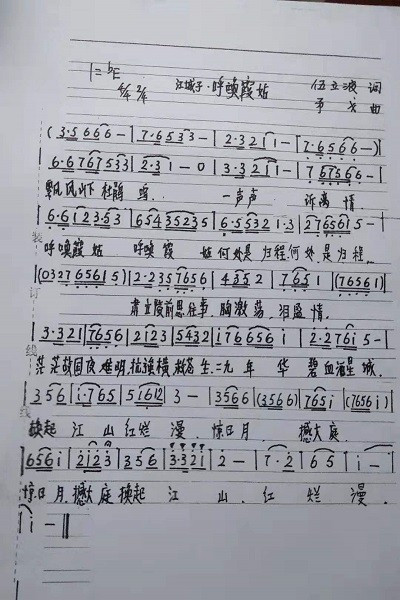 1=bE
4/4 2/4 江城子·呼唤霞姑 伍立波 词
予戈 曲
(3·5 6 6 6 - | 7·6 5 3 3 - | 2·3 2 1 1 - | 7·6 5 6 6 - )
6·6 7 6 7 5 3 3 | 2·3 1 - 0 | 3·3 2 1 1 - | 7 6 7 5 6 6 - |
飘风山下 杜鹃 鸣 一声声 诉离情
6·6 1 2 3·5 3 | 6 5 4 5 5 2 3 5 | 6·5 5 3 2 1·3 | 2 7 6 5 6 1 5 - |
呼唤霞姑 呼唤霞 姑何处是 归程,何处是归程
(0 3 2 7 6 5 6 1 5) | 2·2 3 5 7 6 5 6 | 4 5 5 2 | 7 6 5 1 | (7 6 5 6 1)
肃立陵前思往事 胸激荡 泪盈情.
3·3 2 1 | 7 6 5 6 | 2 1 2 3 | 5 4 3 2 | 1 7 6 6 5 6 1 | 2·2 7 6 1 5 - |
茫茫故国夜难明,抗强横 救苍生.二九年华 碧血洒星城.
3 5 6 | 1·7 6 5 | 5 1 6 1 2 | 3 - | 3 5 6 6 | (3 5 6 6) | 7 6 5 1 | (7 6 5 6 1)
换起 江山红烂漫. 惊日月. 撼大庭.
6 5 6 1 | 2 1 2 3 | 3 5 6 | 3·3 2 1 | 2 - | 7·2 | 6 5 | 1 - |
惊日月.撼大庭 换起 江 山. 红 烂 漫.
1 - ‖
装
订
线